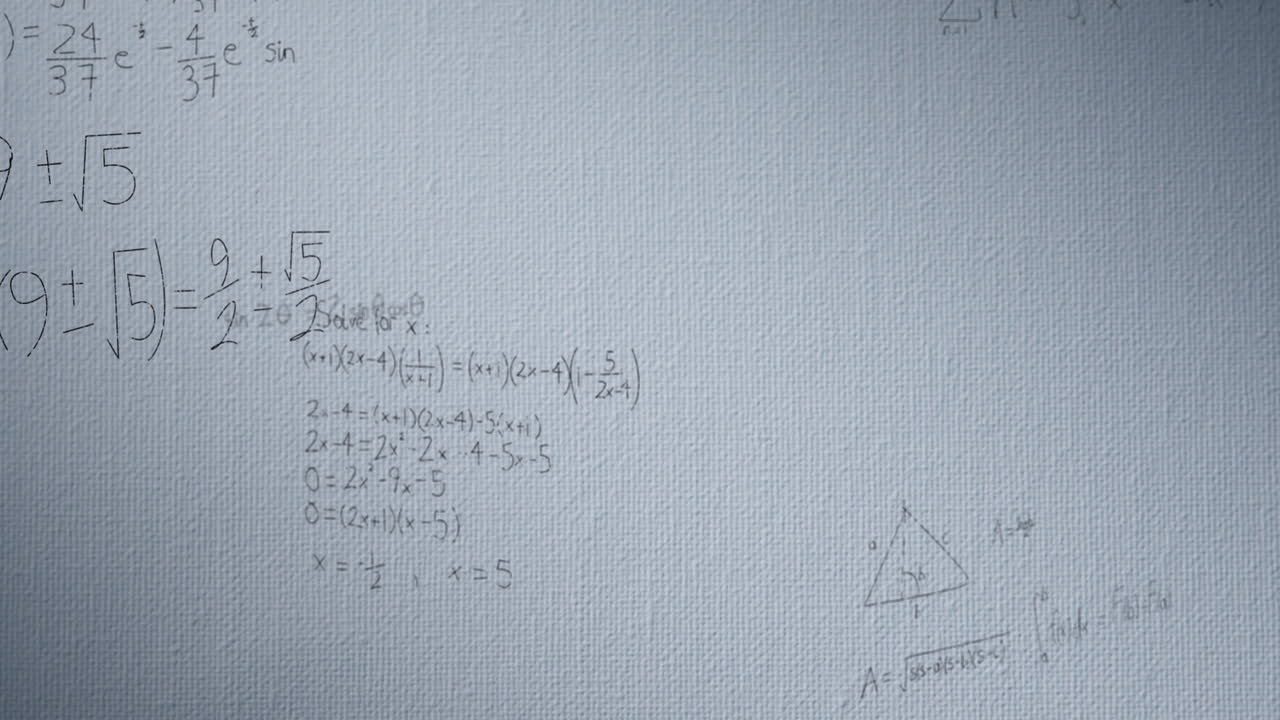 ) = 24/37 e - 4/37 e sin
± √5
(9 ± √5) = 9/2 ± √5/2
Solve for x:
(x+1)(2x-4)(1/(x+1)) = (x+1)(2x-4)(1-5/(2x-4))
2x-4=(x+1)(2x-4)-5(x+1)
2x-4=2x²-2x-4-5x-5
0=2x²-9x-5
0=(2x+1)(x-5)
x=-1/2, x=5
a c
h
b
A=√s(s-a)(s-b)(s-c)
∫ f(x)dx = F(b)-F(a)